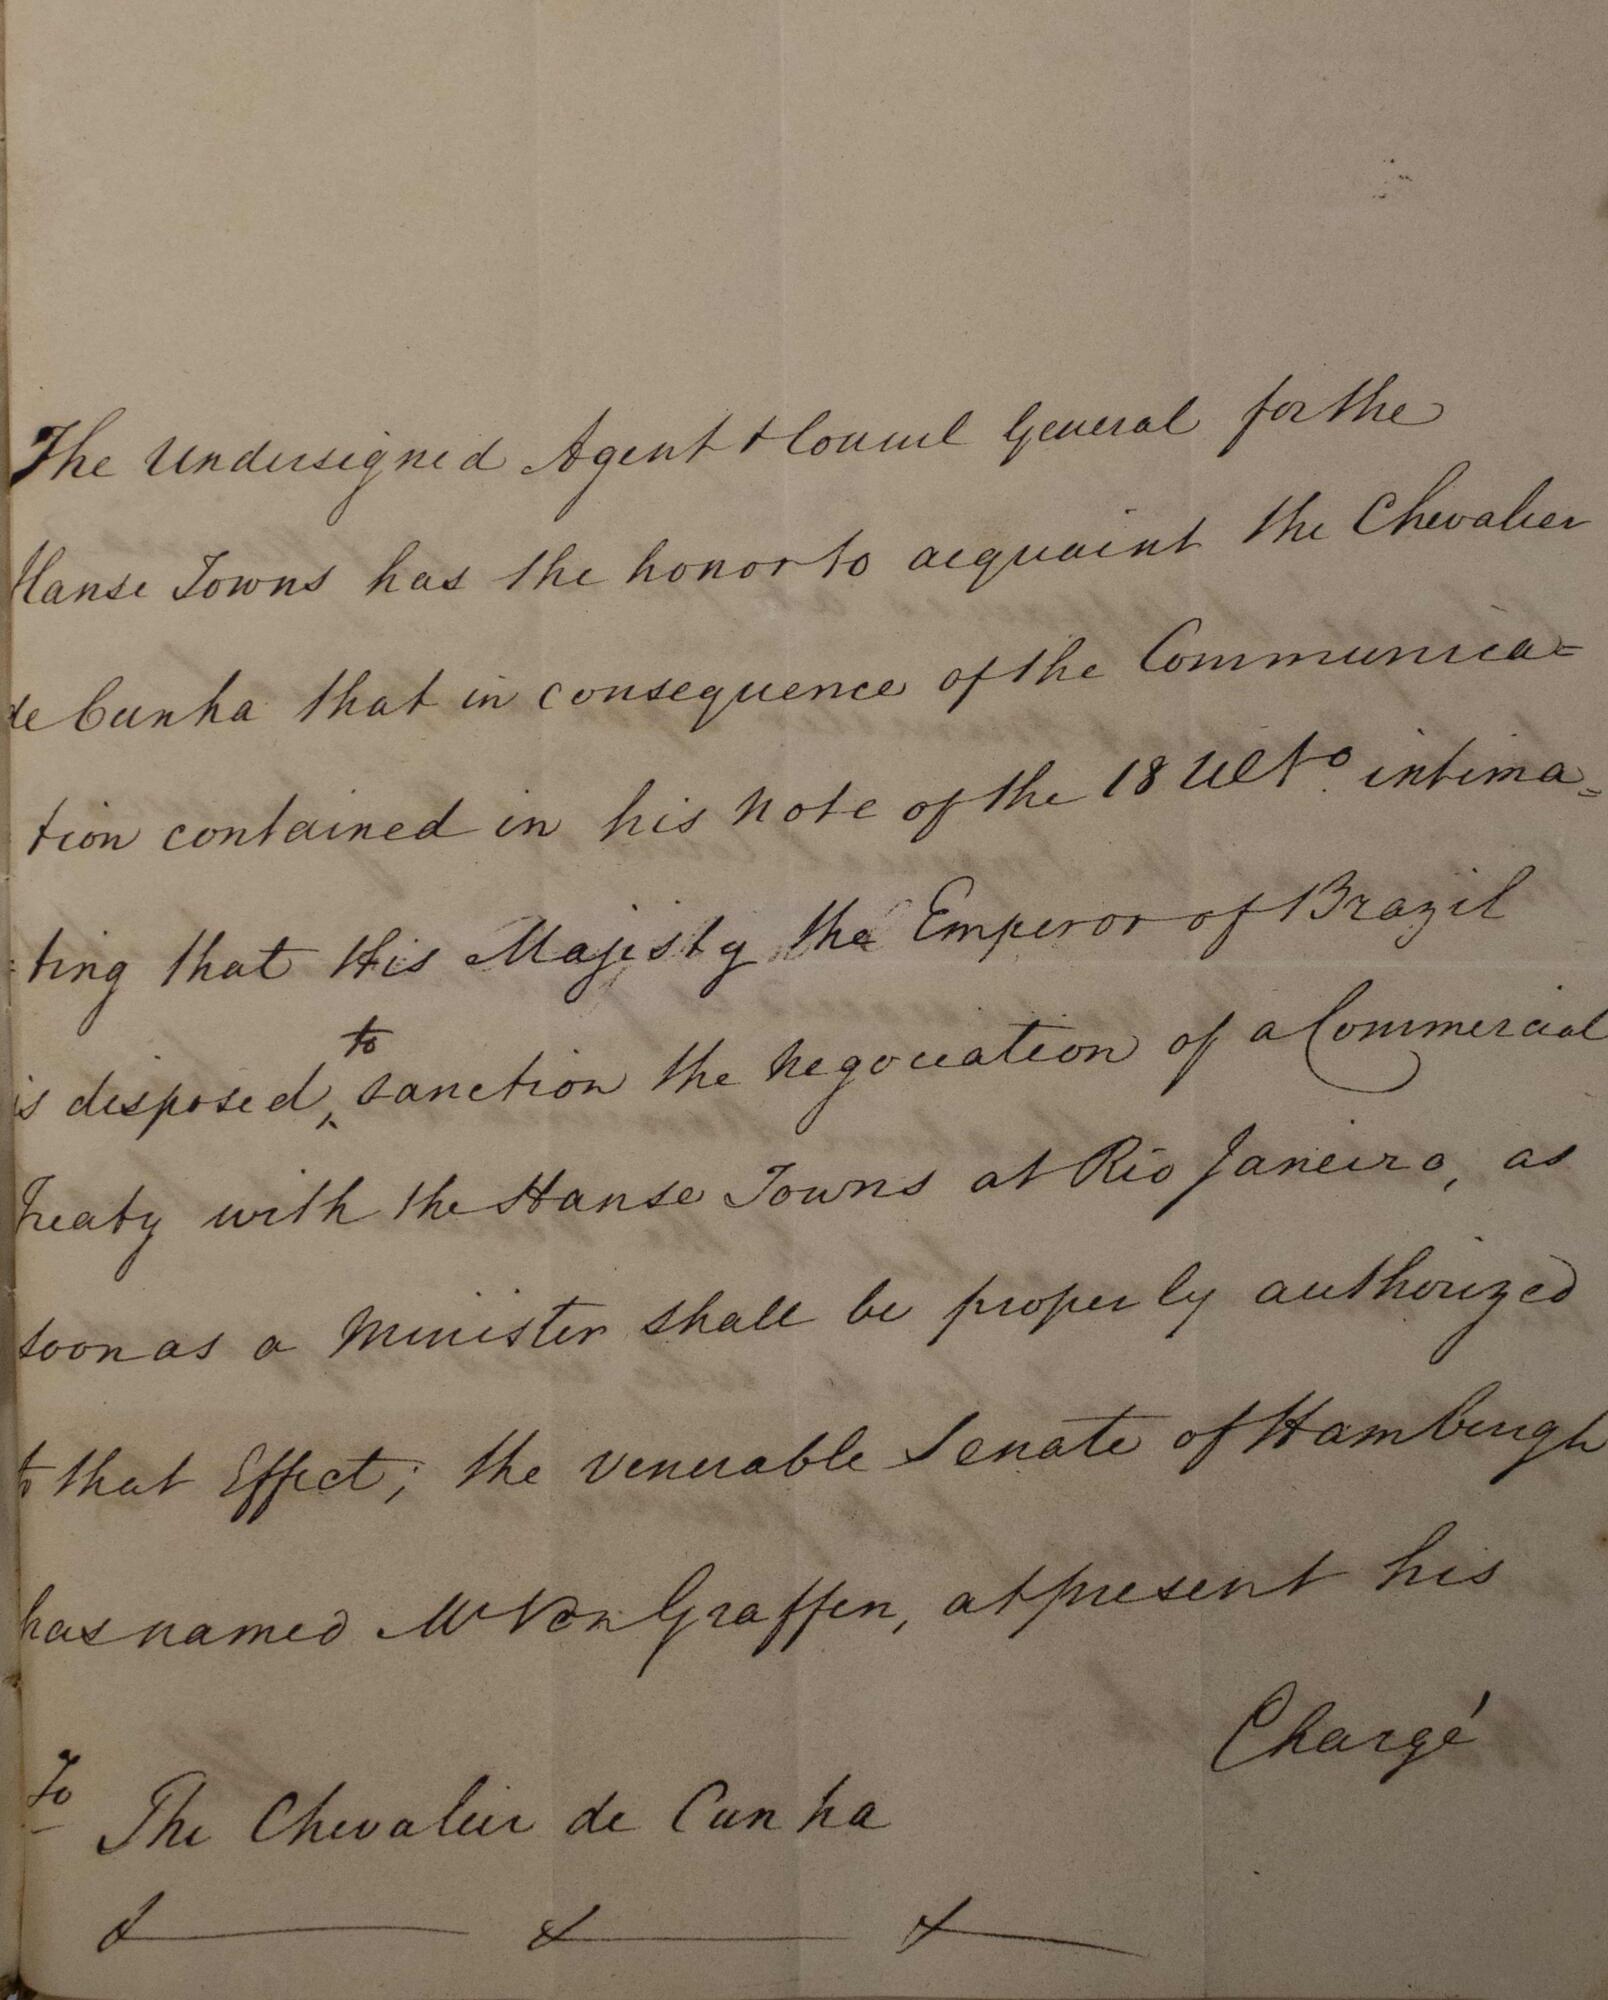 The Undersigned Agent & Consul General for the
Hanse Towns has the honor to acquaint the Chevalier
de Cunha that in consequence of the Communica=
tion contained in his Note of the 18 Ulto. intima=
=ting that His Majesty the Emperor of Brazil
is disposed to sanction the Negociation of a Commercial
Treaty with the Hanse Towns at Rio Janeiro, as
soon as a Minister shall be properly authorized
to that Effect; the venerable Senate of Hamburgh
has named Mr Von Graffen, at present his
Chargé
To
The Chevalier de Cunha
& & &